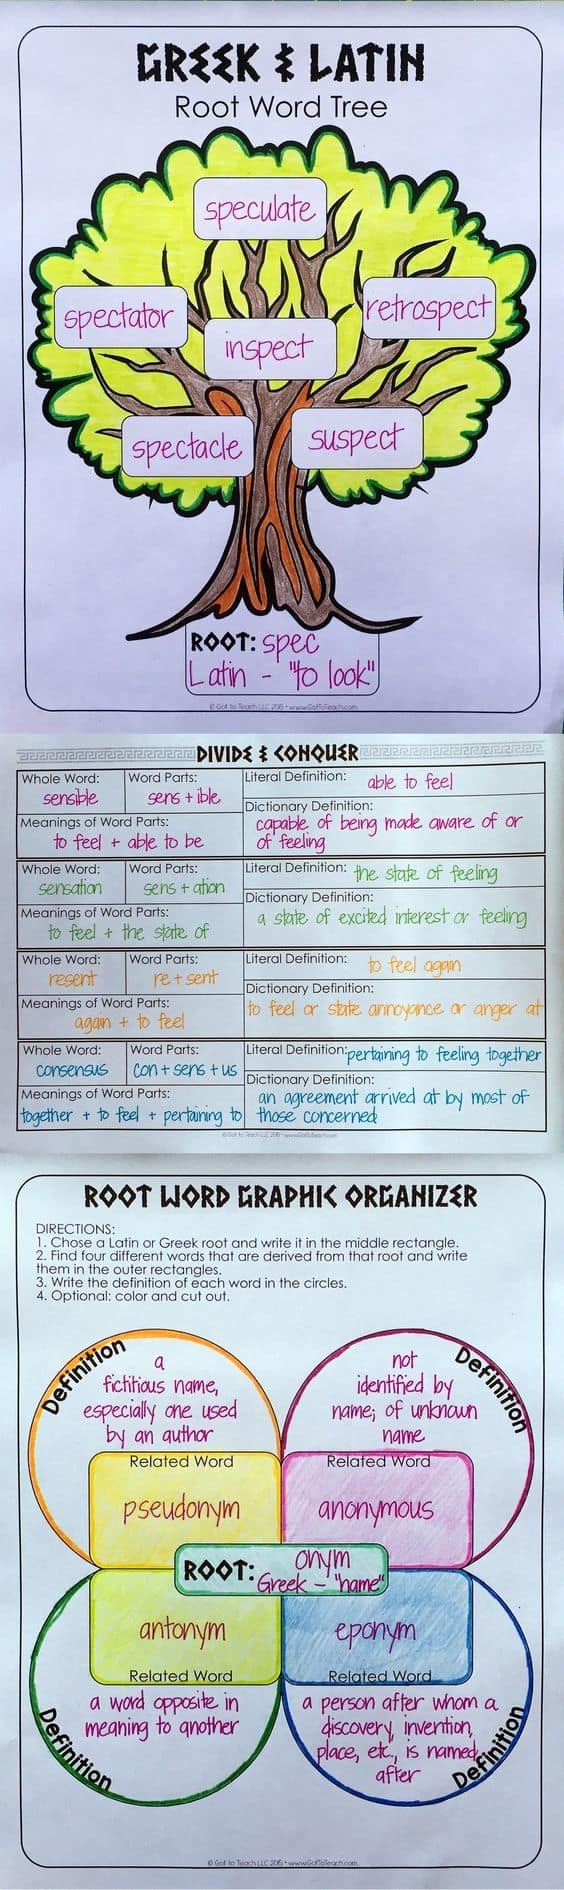 GREEK & LATIN
Root Word Tree
speculate
spectator
retrospect
inspect
spectacle
suspect
ROOT: spec
Latin - "to look"
© Got to Teach LLC 2015 • www.GotToTeach.com
DIVIDE & CONQUER
Whole Word: Word Parts: Literal Definition: able to feel
sensible sens + ible
Dictionary Definition:
Meanings of Word Parts: capable of being made aware of or
to feel + able to be of feeling
Whole Word: Word Parts: Literal Definition: the state of feeling
sensation sens + ation
Dictionary Definition:
Meanings of Word Parts: a state of excited interest or feeling
to feel + the state of
Whole Word: Word Parts: Literal Definition: to feel again
resent re + sent
Dictionary Definition:
Meanings of Word Parts: to feel or state annoyance or anger at
again + to feel
Whole Word: Word Parts: Literal Definition: pertaining to feeling together
consensus con + sens + us
Dictionary Definition:
Meanings of Word Parts: an agreement arrived at by most of
together + to feel + pertaining to those concerned
© Got to Teach LLC 2015 • www.GotToTeach.com
ROOT WORD GRAPHIC ORGANIZER
DIRECTIONS:
1. Chose a Latin or Greek root and write it in the middle rectangle.
2. Find four different words that are derived from that root and write
them in the outer rectangles.
3. Write the definition of each word in the circles.
4. Optional: color and cut out.
Definition
a
fictitious name,
especially one used
by an author
Related Word
pseudonym
Definition
not
identified by
name; of unknown
name
Related Word
anonymous
ROOT: onym
Greek - "name"
antonym
Related Word
a word opposite in
meaning to another
Definition
eponym
Related Word
a person after whom a
discovery, invention,
place, etc., is named
after
Definition
© Got to Teach LLC 2015 • www.GotToTeach.com